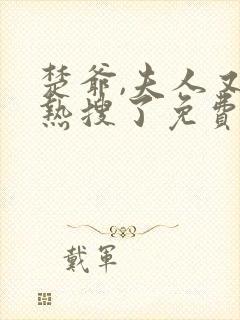 楚爺,夫人又
熱搜了免費
戴軍